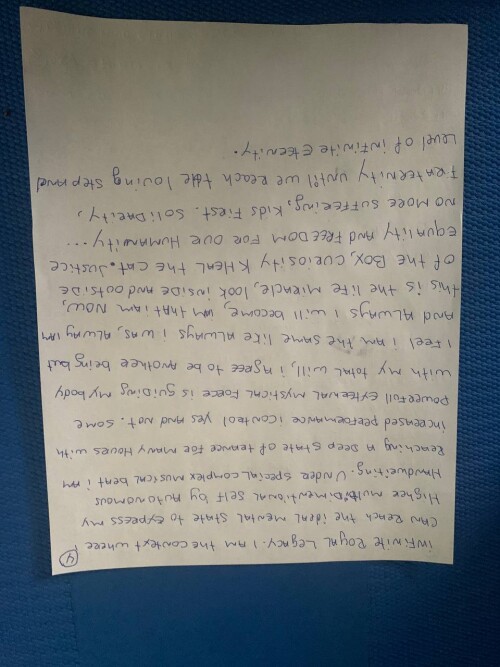 4
infinite Royal Legacy. I am the context where i
can Reach the ideal mental state to express my
Higher multiDimentional self by Autonomous
Handwriting. Under special complex musical beat i am
Reaching a Deep state of trance for many Hours with
increased performance i control yes and not. some
powerfull external mystical force is guiding my body
with my total will, i Agree to be another being but
I feel i am the same like always i was, always am
and Always i will become, am that i am now,
this is the life miracle, look inside and outside
of the Box, curiosity KHEAL the cat. Justice
Equality and FREEDOM FOR OUR HUMANITY...
NO MORE SUFFERING, Kids First. Solidarity,
Fraternity until we reach the loving step and
Level of infinite Eternity.